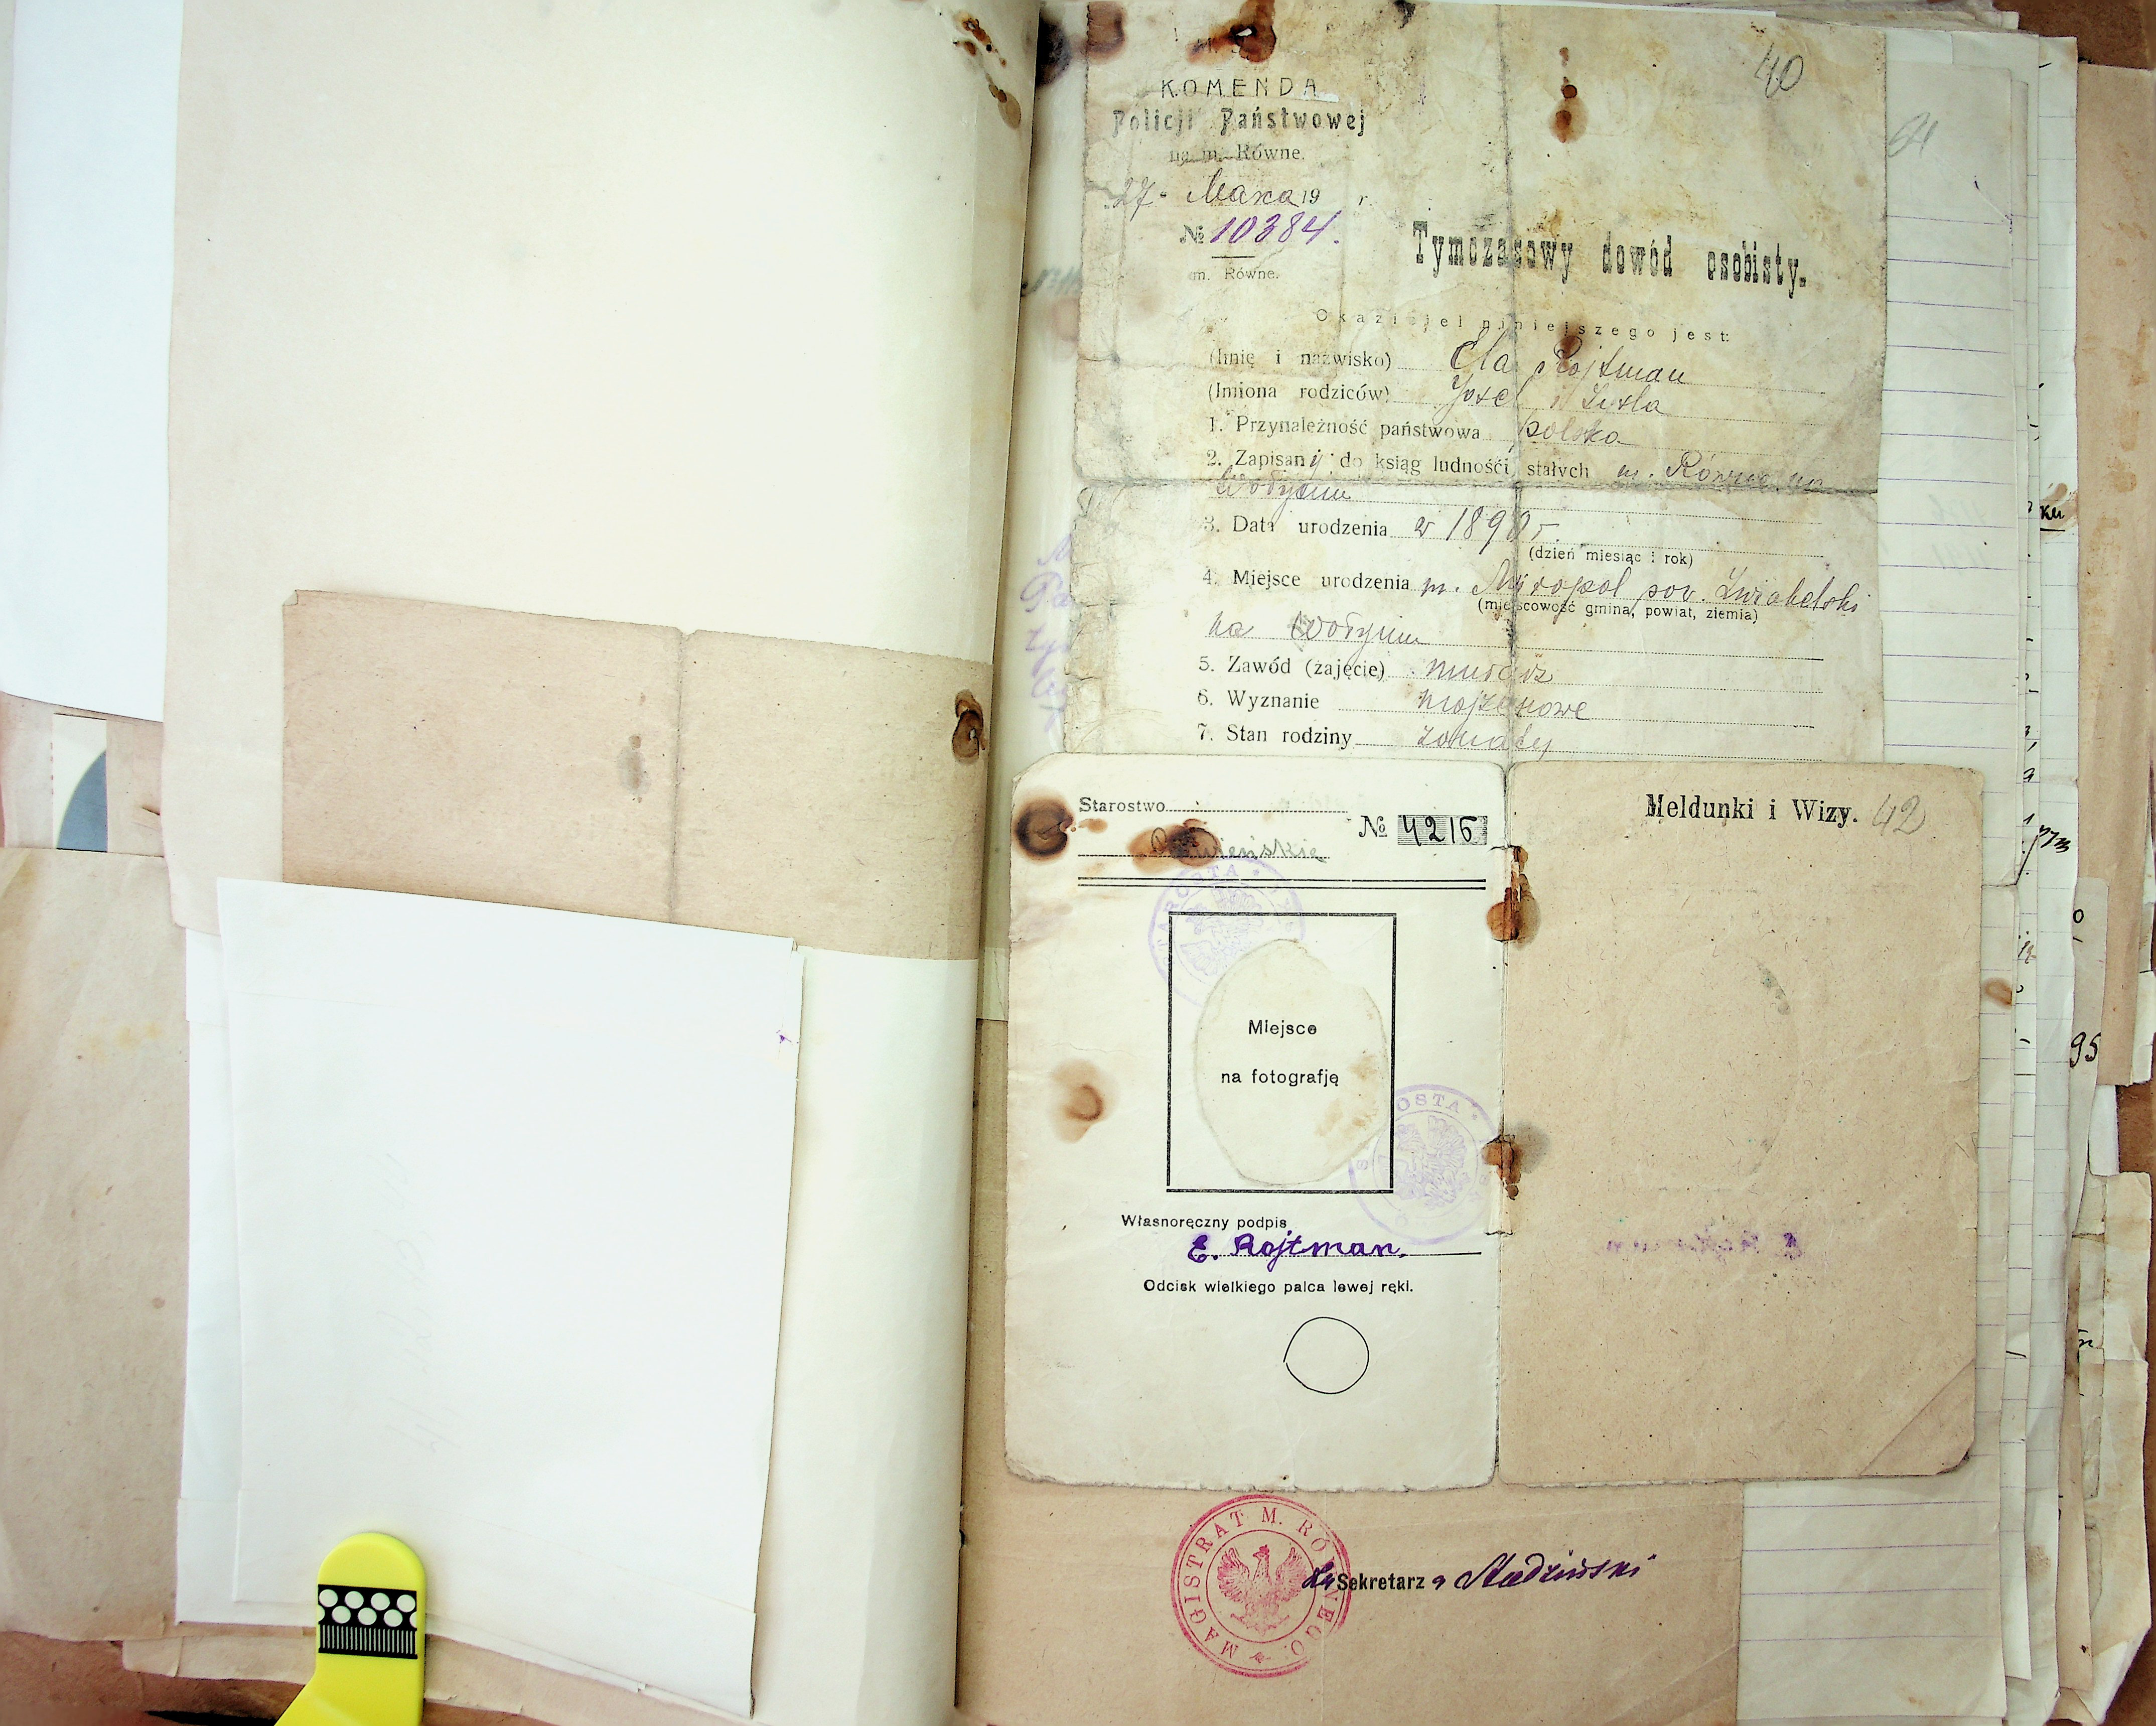 40
KOMENDA
Policji Państwowej
na m. Równe.
27. Marca 19 r.
№ 10384.
m. Równe.
Tymczasowy dowód osobisty.
Okaziciel niniejszego jest:
(Imię i nazwisko) Ela Rojtman
(Imiona rodziców) Josel i
1. Przynależność państwowa polska
2. Zapisany do ksiąg ludnośći stałych m. Równe na
Wołyniu
3. Data urodzenia w 1890 r.
(dzień miesiąc i rok)
4. Miejsce urodzenia m. Miropol pow. Zwiahelski
(miejscowość gmina, powiat, ziemia)
na Wołyniu
5. Zawód (zajęcie) murarz
6. Wyznanie mojżeszowe
7. Stan rodziny żonaty
Starostwo
№ 4216
STAROSTA
Miejsce
na fotografję
STAROSTA
Własnoręczny podpis
E. Rojtman.
Odcisk wielkiego palca lewej ręki.
Meldunki i Wizy. 42
MAGISTRAT M. RÓWNEGO.
Sekretarz
95